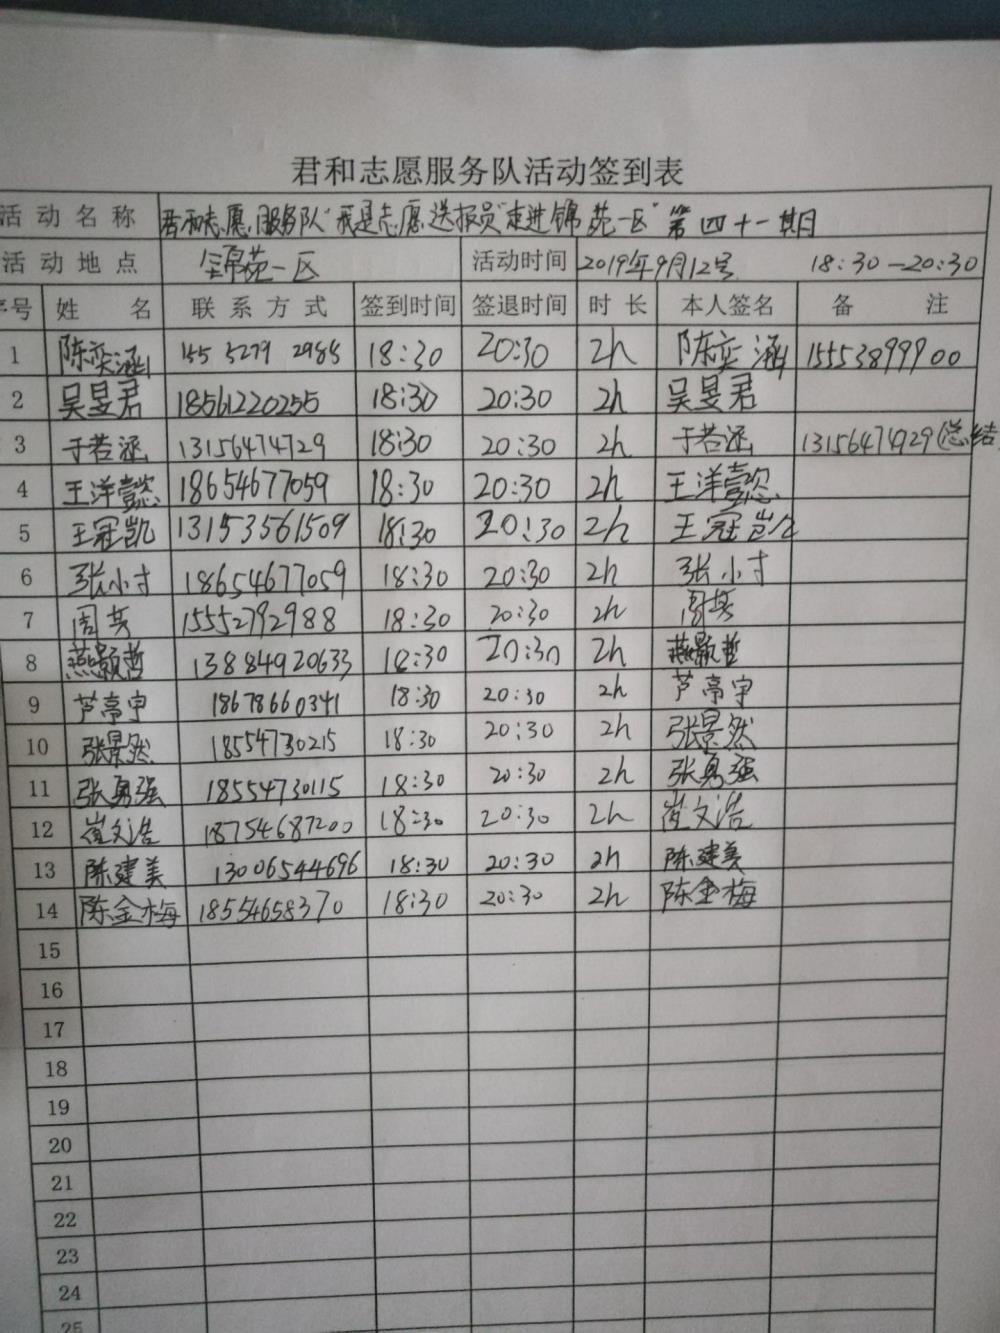 君和志愿服务队活动签到表
活动名称 君和志愿服务队"我是志愿送报员"走进锦苑一区"第四十一期日
活动地点 锦苑一区 活动时间 2019年9月12号 18:30—20:30
序号 姓名 联系方式 签到时间 签退时间 时长 本人签名 备注
1 陈奕涵 155 5279 2988 18:30 20:30 2h 陈奕涵 15553899900
2 吴旻君 18561220255 18:30 20:30 2h 吴旻君
3 于若涵 13156474729 18:30 20:30 2h 于若涵 13156474929(总结
4 王洋懿 18654677059 18:30 20:30 2h 王洋懿
5 王冠凯 13153561509 18:30 20:30 2h 王冠凯
6 张小寸 18654677059 18:30 20:30 2h 张小寸
7 周芳 15552792988 18:30 20:30 2h 周芳
8 燕颢哲 13884920633 18:30 20:30 2h 燕颢哲
9 芦亭宇 18678660341 18:30 20:30 2h 芦亭宇
10 张景然 18554730215 18:30 20:30 2h 张景然
11 张勇强 18554730115 18:30 20:30 2h 张勇强
12 崔文浩 18754687200 18:30 20:30 2h 崔文浩
13 陈建美 13006544696 18:30 20:30 2h 陈建美
14 陈金梅 18554658370 18:30 20:30 2h 陈金梅
15
16
17
18
19
20
21
22
23
24
25